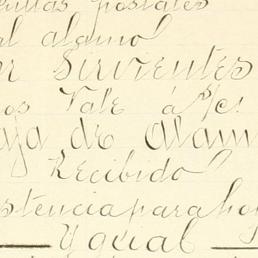 postales
al alamo
or Sirvientes
os Vale á
aja de Alam
Recibido
stencia para ho
Ygual